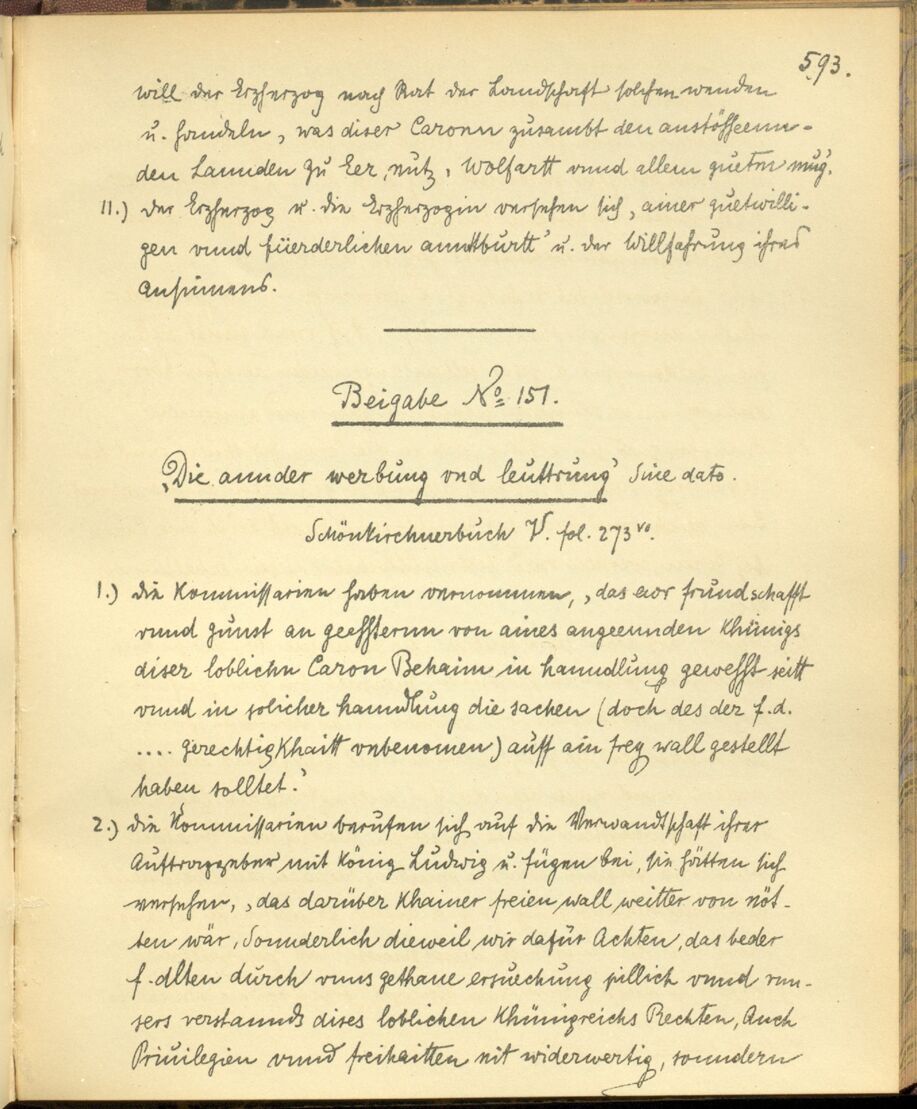 593.
will der Erzherzog nach Rat der Landschaft solchen wenden
u. handeln, was diser Caronn zusambt den anstösseenn-
den Lannden zu Eer, nutz, Wolfartt vnnd allem guetm mug'.
11.) der Erzherzog u. die Erzherzogin versehen sich, ainer guetwilli-
gen vnnd füerderlichen anndtburtt' u. der Willfahrung ihres
Ansinnens.
Beigabe No 151.
„Die annder werbung vnd leuttrung' Sine dato.
Schönkirchnerbuch V. fol. 273vo.
1.) die Kommissarien haben vernommen, „das eor frundschafft
vnnd gunst an geessternn von aines angeennden Khünigs
diser loblichn Caron Behaim in hanndlung gewesst seitt
vnnd in solicher hanndlung die sachen (doch des der f. d.
.... gerechtigkhaitt vnbenomen) auff ain frey wall gestellt
haben solltet.'
2.) die Kommissarien berufen sich auf die Verwandtschaft ihrer
Auftraggeber mit König Ludwig u. fügen bei, sie hätten sich
versehen, „das darüber khainer freien wall weitter von nöt-
ten wär, Sonnderlich dieweil wir dafür Achten, das beder
f. dlten durch vnns gethane ersuechung pillich vnnd vnn-
sers verstannds dises loblichen Khünigreichs Rechten, Auch
Priuilegien vnnd freihaitten nit widerwertig, sonndern